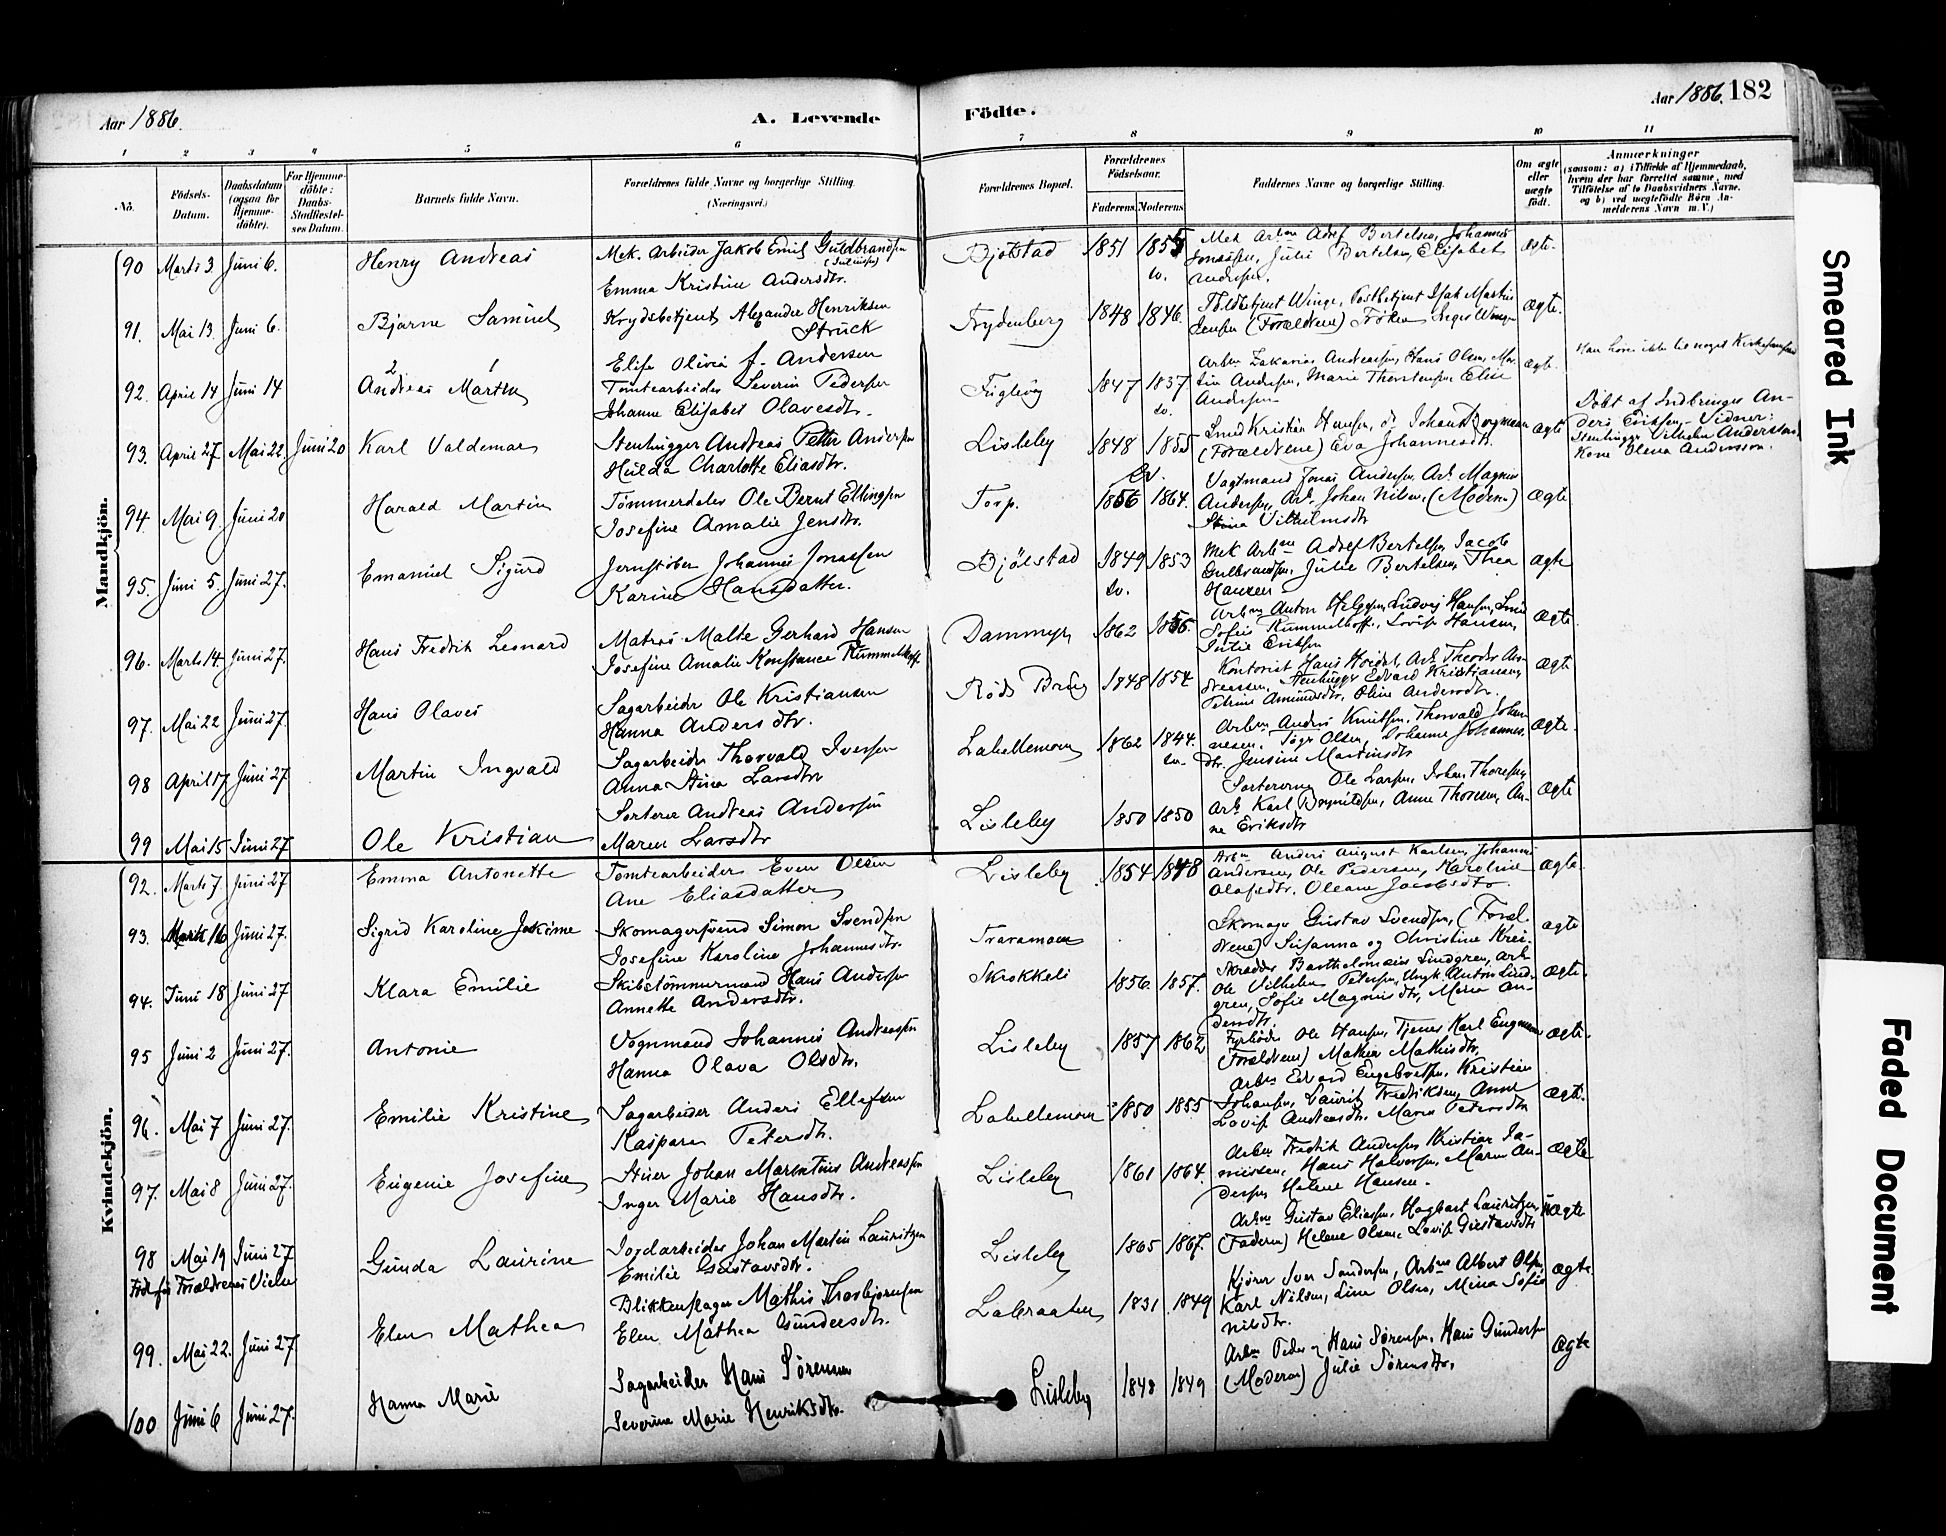 Aar 1886.
A. Levende
Födte.
Aar 1886. 182
1 2 3 4 5 6 7 8 9 10 11
No.
Födsels-Datum.
Daabsdatum (ogsaa for Hjemme-döbte).
For Hjemme-döbte: Daabs-Stadfæstel-ses Datum.
Barnets fulde Navn.
Forældrenes fulde Navne og borgerlige Stilling.
(Næringsvei.)
Forældrenes Bopæl.
Forældrenes Födselsaar.
Faderens. Moderens.
Faddernes Navne og borgerlige Stilling.
Om ægte eller uægte födt.
Anmærkninger
(saasom: a) i Tilfælde af Hjemmedaab, hvem der har forrettet samme, med Tilföielse af to Daabsvidners Navne, og b) ved uægtefödte Börn An-melderens Navn m. V.)
Mandkjön.
90 Marts 3 Juni 6. Henry Andreas
Mek. Arbeider Jakob Emil Guldbrandsen
Emma Kristine Andersdtr.
Bjølstad 1851
Bertelsen, Johannes
Jonassen, Julie Bertelsen, Elisabet
Andersen.
ægte.
91. Mai 13. Juni 6. Bjarne Samuel
Krydsbetjent Alexander Henriksen
Struck
Elise Olivia f. Andersen
Frydenberg 1848 1846.
Toldbetjent Winge, Postbetjent Isak Martin
Jensen (Forældrene) Frøken Inger Winge
Ægte.
92. April 14 Juni 14 2 Andreas 1 Martin
Tomtearbeider Severin Pedersen
Johanne Elisabet Olavesdtr.
Fuglevig 1847 1837
Arbm Zakarias Andreassen, Hans Olsen, Mar-
tin Andersen, Marie Thorstensen Elise
Andersen
ægte.
93. April 27 Mai 22. Juni 20 Karl Valdemar
Stenhugger Andreas Petter Andersen
Hulda Charlotte Eliasdtr.
Lisleby 1848 1855
Smed Kristian Hansen, og Johan Borgmann
(Forældrene) Eva Johannesdtr.
Ægte
Döbt af Indbringer An-
ders Eriksen. Vidner:
Stenhugger Vilhelm Anderson,
Kone Olena Andersson.
94. Mai 9. Juni 20 Harald Martin
Tømmerdeler Ole Bernt Ellingsen
Josefine Amalie Jensdtr.
Torp. 1856 1864.
Vagtmand Jonas Andersen Arb. Magnus
Andersen, Arb. Johan Nilsen, (Moderen)
Stina Vilhelmsdtr
Ægte
95. Juni 5. Juni 27. Emanuel Sigurd
Jernstøber Johannes Jonassen
Karine Hansdatter.
Bjølstad 1849 1853
Mek Arbm Adolf Bertelsen, Jacob
Gulbrandsen, Julie Bertelsen, Thea
Hansen
Ægte
96. Marts 14 Juni 27. Hans Fredrik Leonard
Matros Malte Gerhard Hansen
Josefine Amalie Konstance Rummelhoff.
Dammyr 1862
Arbm Anton Helgesen, Ludvig Hansen,
Sofus Rummelhoff, Lovise Hansen,
Julie Eriksen
Ægte.
97. Mai 22 Juni 27. Hans Olaves
Sagarbeider Ole Kristiansen
Hanna Andersdtr.
Røds Brug 1848 1854
Kontorist Hans Arb. Theodor An-
dreassen, Stenhugger Edvard Kristiansen,
Petrine Amundsdtr, Oline Andersdtr.
Ægte
98 April 17 Juni 27 Martin Ingvald
Sagarbeider Thorvald Iversen
Anna Stina Larsdtr
Labellemoen 1862 1844.
Arbm Anders Knutsen, Thorvald Johan-
nesen, Olsen, Johanne Johannes-
dtr. Jensine Martinsdtr
Ægte.
99 Mai 15 Juni 27 Ole Kristian
Sorterer Andreas Andersen
Maren Larsdtr
Lisleby 1850 1850
Ole Larsen, Johan Thoresen,
Arb. Karl Anne Thoresen, An-
ne Eriksdtr
Ægte
Kvindekjön.
92. Marts 7. Juni 27 Emma Antonette
Tomtearbeider Even Olsen
Ane Eliasdatter
Lisleby 1854 1848
Arbm Anders August Karlsen, Johannes
Andersen, Ole Pedersen, Karoline
Olafsdtr. Oleane Jacobsdtr.
Ægte.
93. Marts 16 Juni 27. Sigrid Karoline Jokime
Skomagersvend Simon Svendsen
Josefine Karoline Johannesdtr.
Traramoen
Skomager Gustav Svendsen, (Foræl-
drene) Susanna og Christine
ægte
94. Juni 18 Juni 27 Klara Emilie
Skibstømmermand Hans Andersen
Annette Andersdtr.
Skrokkeli 1856 1857.
Skrædder Bartholomæus Lindgren, Arb
Ole Vilhelm Petersen, Ungk. Anton Lind-
gren, Sofie Magnusdtr, Maren An-
dersdtr
Ægte
95 Juni 2 Juni 27. Antonie
Vognmand Johannes Andreassen
Hanna Olava Olsdtr.
Lisleby 1857 1862
Fyrbøder Ole Hansen, Tjener Karl
(Forældrene) Mathea Mathisdtr.
Ægte.
96. Mai 7 Juni 27. Emilie Kristine
Sagarbeider Anders Ellefsen
Kaspara Petersdtr.
Labellemoen 1850 1855
Arbm Edvard Engebretsen, Kristian
Johansen, Laurits Fredriksen, Anne
Lovise Andersdtr. Maren Petersdtr
Ægte.
97. Mai 8 Juni 27. Eugenie Josefine
Stuer Johan Marentius Andreassen
Inger Marie Hansdtr.
Lisleby 1861 1864.
Arbm Fredrik Andersen, Kristian Ja-
Hans Halvorsen, Maren An-
dersen, Helene Hansen.
Ægte
98 Mai 19 Juni 27 Gunda Laurine
Född før Forældrenes Vielse
Jordarbeider Johan Martin Lauritzen
Emilie Gustavsdtr.
Lisleby 1865 1867.
Arbm Gustav Eliassen, Hagbart Lauritzen,
(Faderen) Helene Olsen, Lovise Gustavsdtr
uægte
99. Mai 22. Juni 27. Elen Mathea
Blikkenslager Mathis Thorbjørnsen
Elen Mathea Gundersdtr.
Labraaten 1831 1849
Kjører Iver Sandersen, Arbm Albert Olsen,
Karl Nilsen, Line Olsen, Mina Sofie
Nilsdtr.
ægte
100 Juni 6 Juni 27. Hanna Marie
Sagarbeider Hans Sørensen
Severine Marie Henriksdtr.
Lisleby 1848 1849
Arbm Peder og Hans Sørensen, Hans Gundersen
(Moderen) Julie Sørensdtr.
Ægte
Smeared Ink
Faded Document